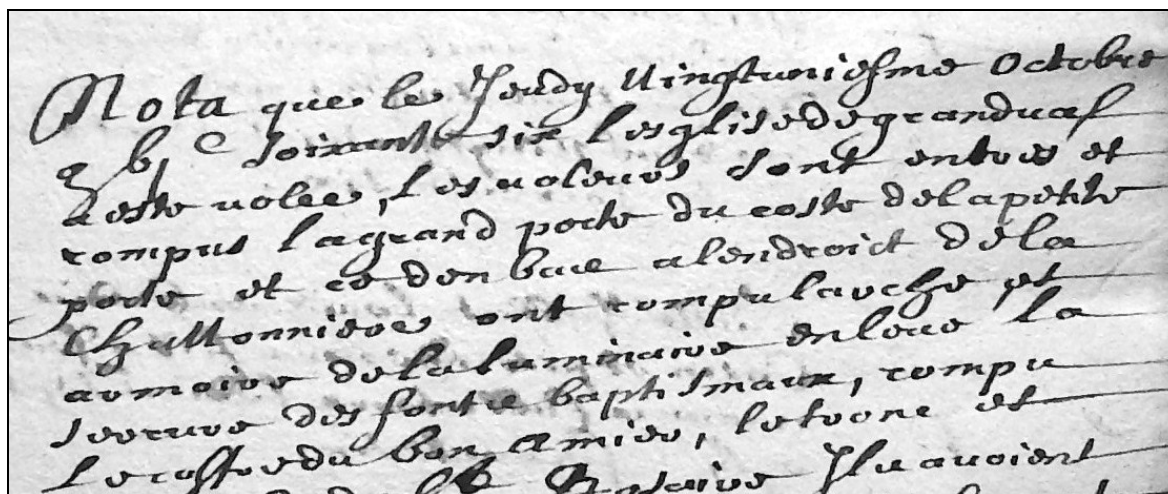 Nota que le Jeudy Vingtuniesme Octobre
soixante six Lesglise de granduas
a este volee, Les voleurs sont entres et
rompus La grand porte du coste de la petitte
porte et ce den bas a lendroict de la
ont rompu larche et
armoire de la luminaire enleve La
serrure des fontz baptismaux, rompu
Le coffre du bon Amier, le tronc et
Rosaire Jl y avoient